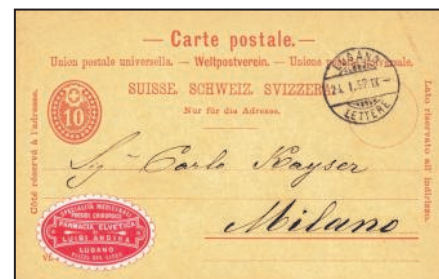 — Carte postale. —
Union postale universelle. — Weltpostverein. — Unione postale universale.
SUISSE. SCHWEIZ. SVIZZERA.
Nur für die Adresse.
Côté réservé à l'adresse.
Lato riservato all' indirizzo.
10
LUGANO
LETTERE
Sig. Carlo Kayser
Milano
SPECIALITÀ MEDICINALI
FARMACIA ELVETICA
LUIGI ANDINA
LUGANO